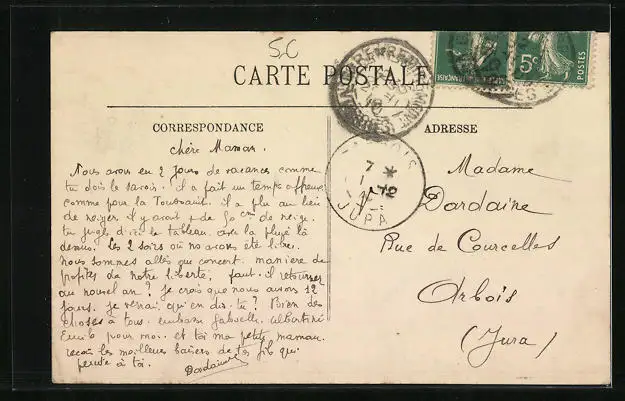 5C
CARTE POSTALE
5c
POSTES
CORRESPONDANCE
ADRESSE
chère Maman.
Nous avons eu 2 jours de vacances comme
tu dois le savoir. il a fait un temps affreux
comme pour la Toussaint. il a plu au lieu
de neiger il y avait + de 50 cm de neige.
tu juges d'ici le tableau. avec la pluie là
dessus. Les 2 soirs où nous avons été libre.
nous sommes allés au concert. manière de
profiter de notre liberté; faut-il retourner
au nouvel an? je crois que nous aurons 12
jours. je verrai, qu'en dis-tu? Bien des
choses à tous. Gabrielle. Albertine
Emile pour moi. et toi ma petite maman.
reçois les meilleurs baisers de ton fils qui
pense à toi.
Dardaine
Madame
Dardaine
Rue de Courcelles
Arbois
(Jura)
7 *
1
12
JURA